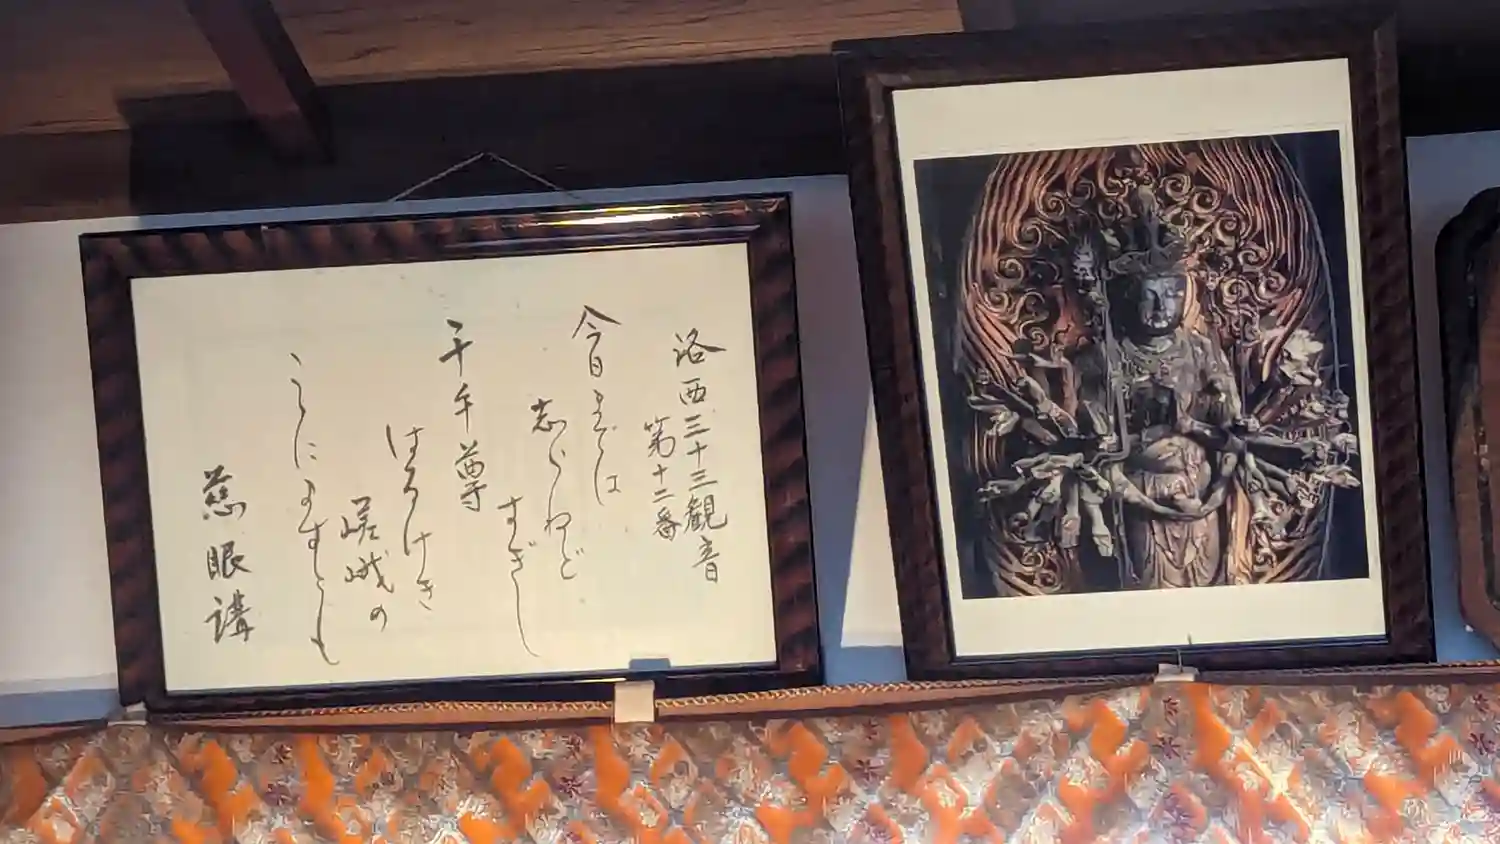 洛西三十三観音
第十二番
今日までは
志らねど
すぎし
千手尊
はるけき
嵯峨の
こゝにますとも
慈眼講